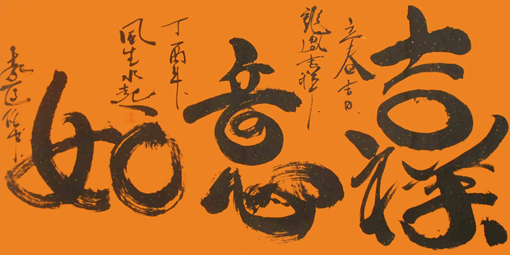 吉祥
立春吉日
龍鳳吉祥
意
丁酉年
風生水起
如